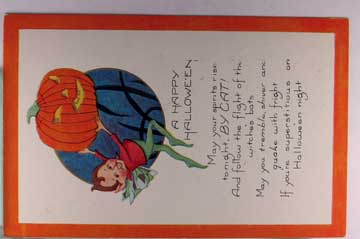 A HAPPY
HALLOWE'EN!
May your spirits rise
tonight, BY CAT!
And follow the flight of the
witches bats
May you tremble, shiver and
quake with fright
If you're superstitious on
Halloween night